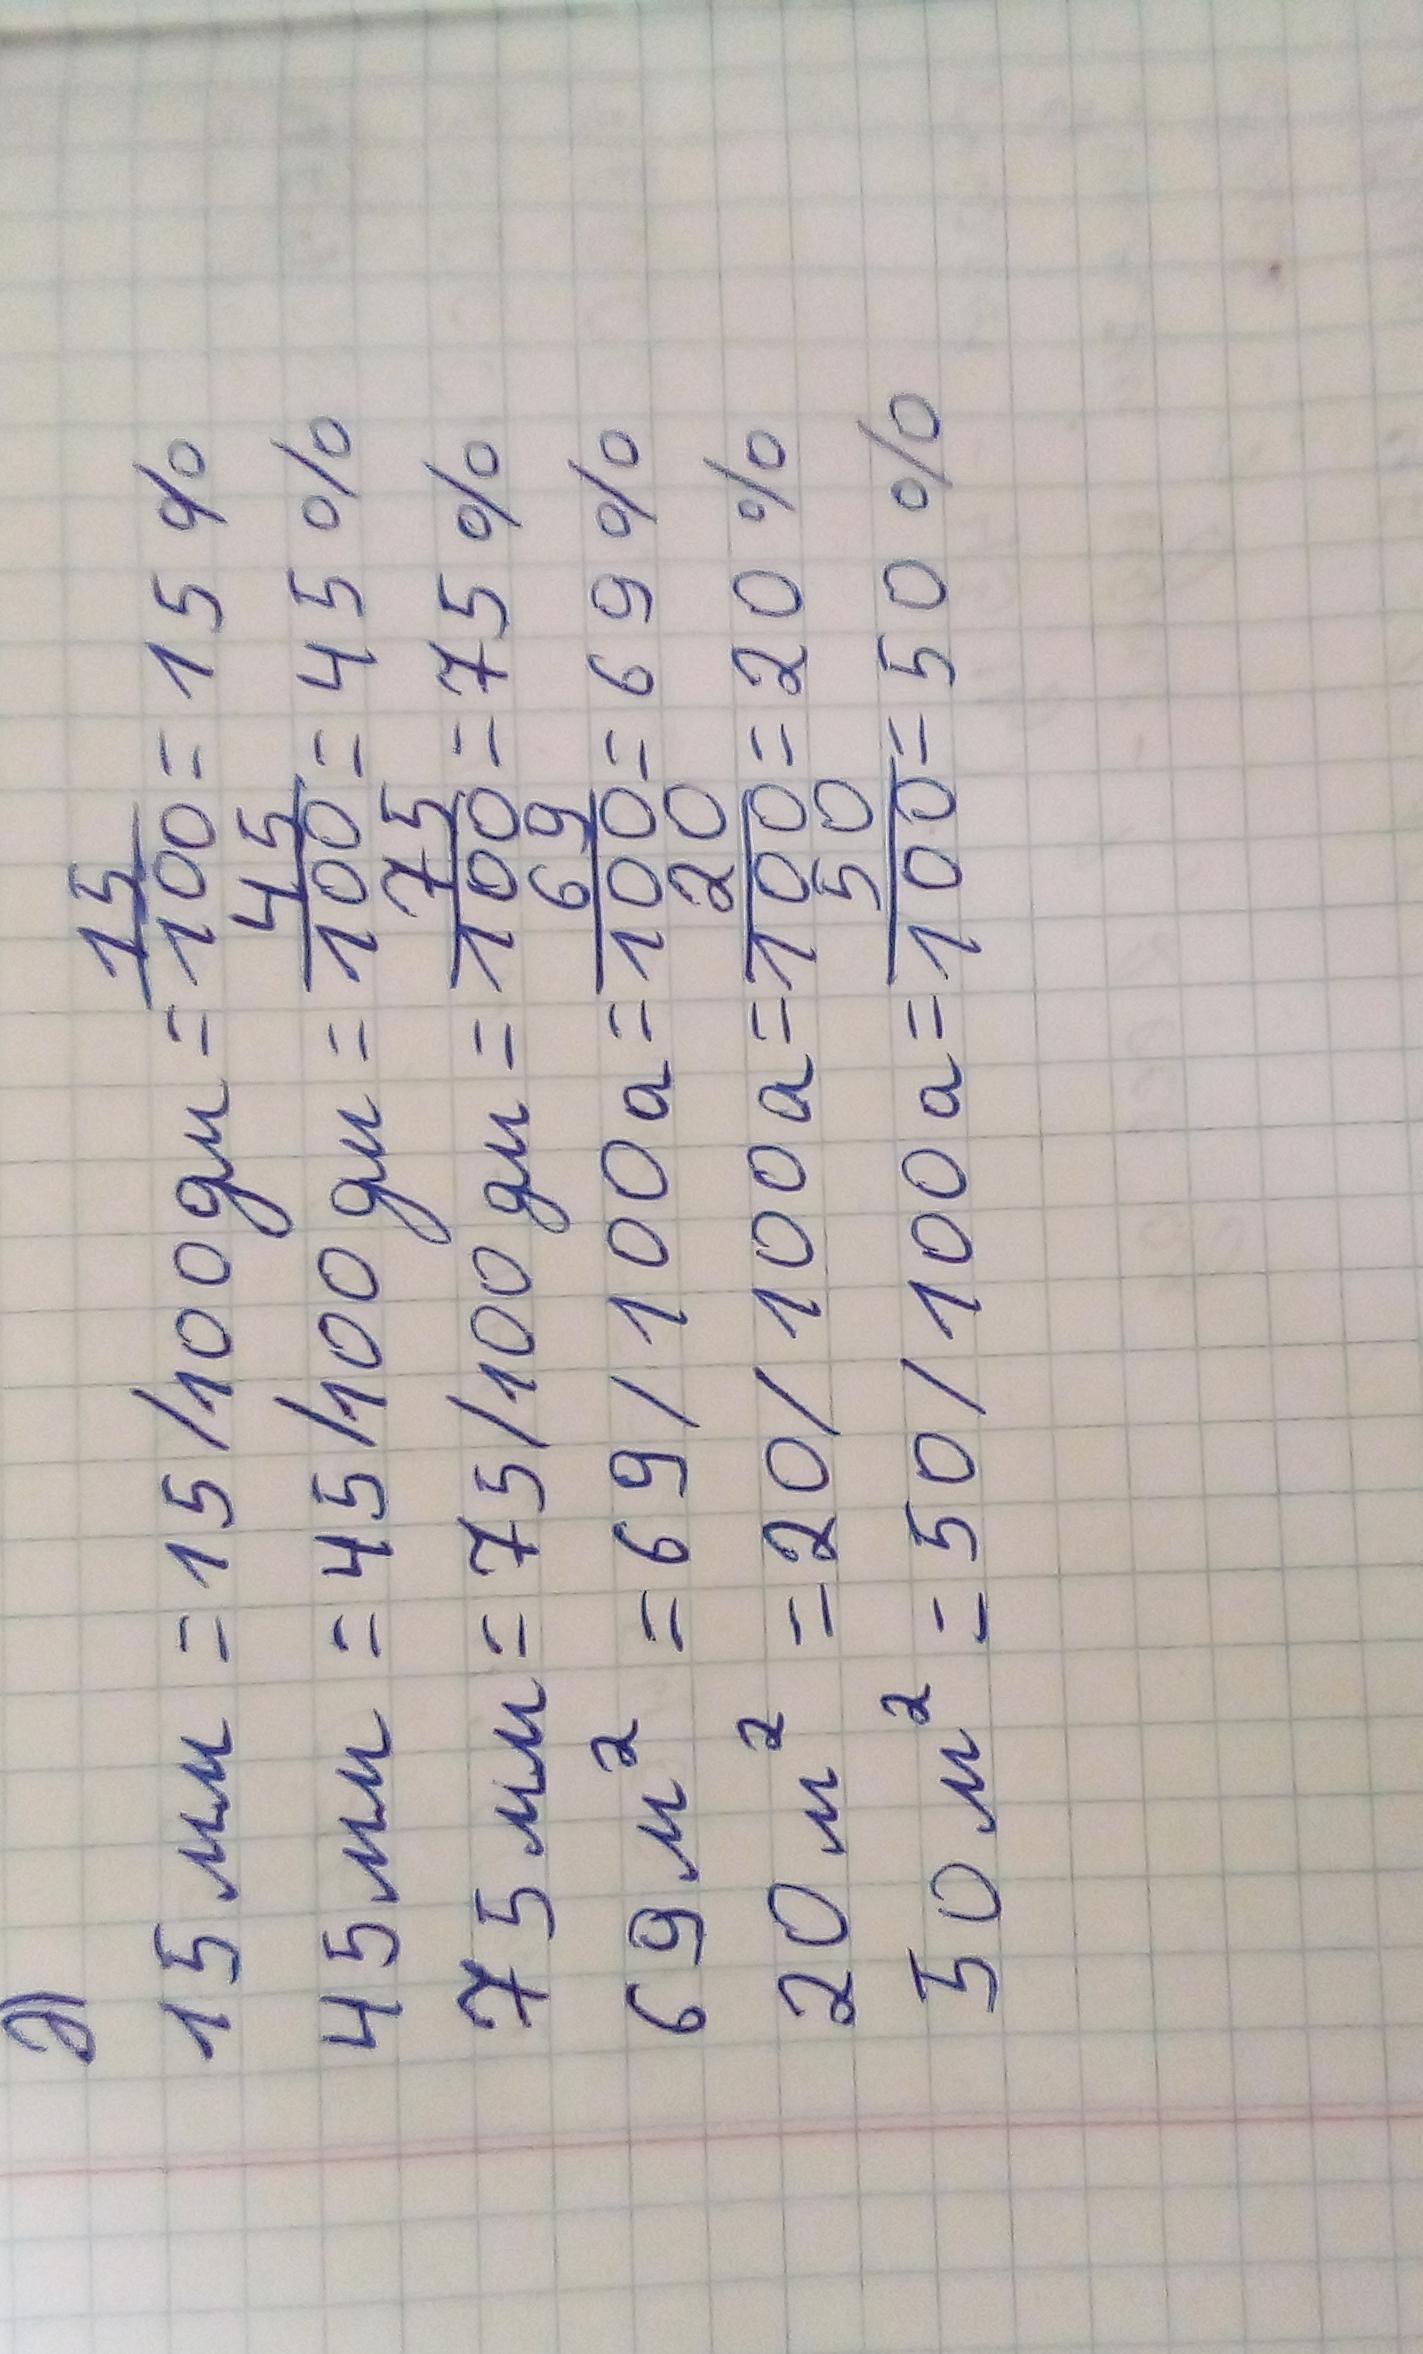 д)
15 мм = 15/100 дм = 15/100 = 15 %
45 мм = 45/100 дм = 45/100 = 45 %
75 мм = 75/100 дм = 75/100 = 75 %
69 м² = 69/100 а = 69/100 = 69 %
20 м² = 20/100 а = 20/100 = 20 %
50 м² = 50/100 а = 50/100 = 50 %